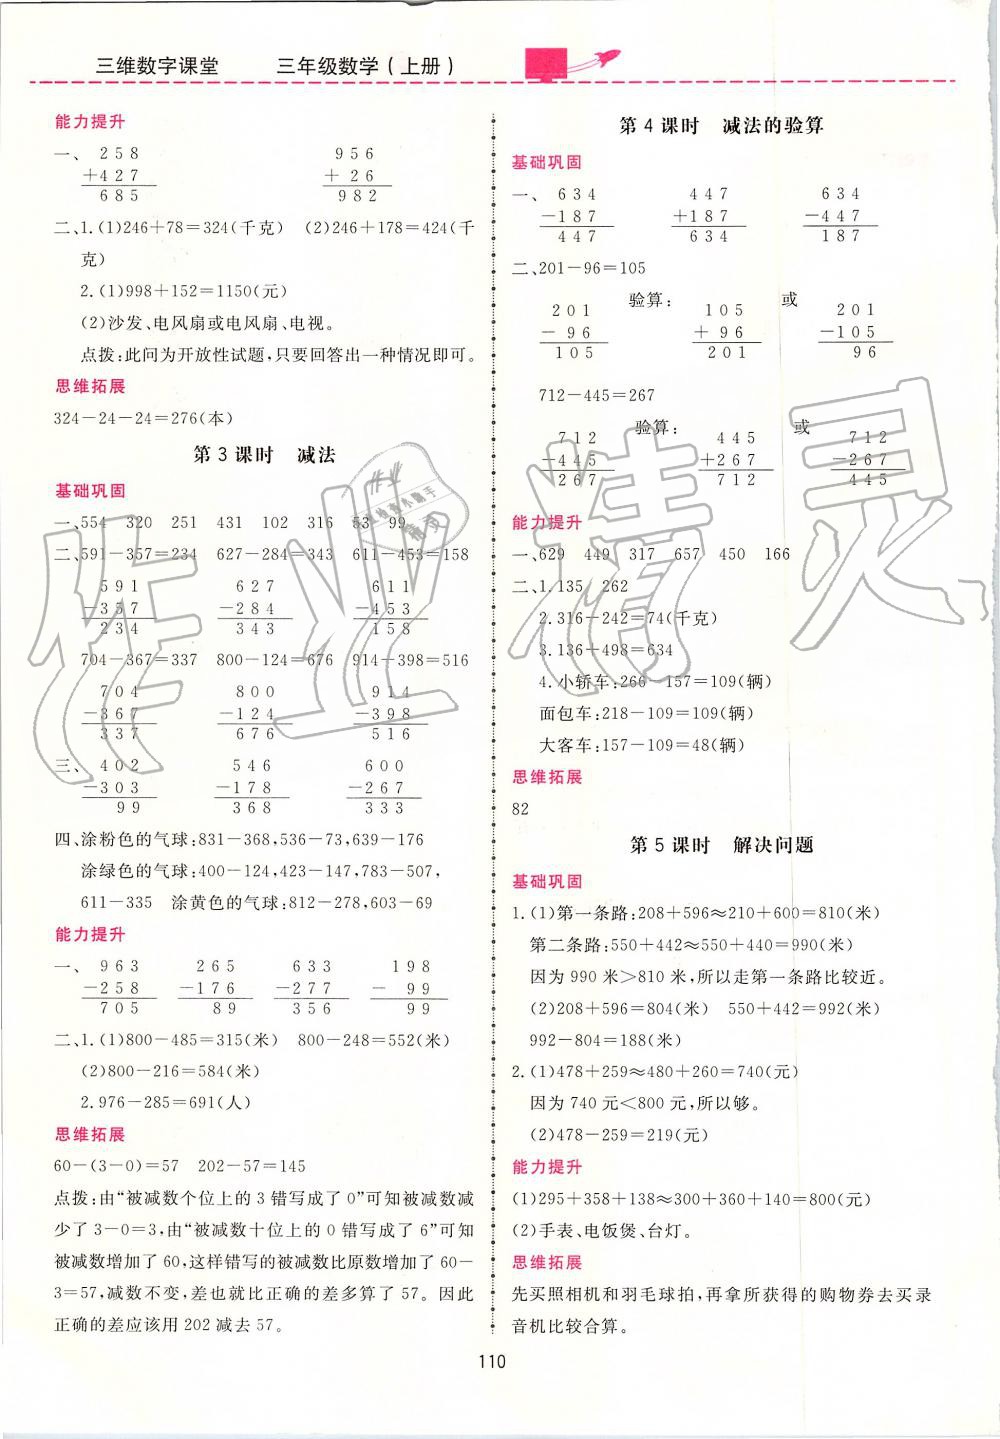 三维数字课堂 三年级数学(上册)
能力提升
一、 258 956
+427 + 26
685 982
二、1.(1)246+78=324(千克) (2)246+178=424(千
克)
2.(1)998+152=1150(元)
(2)沙发、电风扇或电风扇、电视。
点拨:此问为开放性试题,只要回答出一种情况即可。
思维拓展
324-24-24=276(本)
第3课时 减法
基础巩固
一、554 320 251 431 102 316 53 99
二、591-357=234 627-284=343 611-453=158
591 627 611
-357 -284 -453
234 343 158
704-367=337 800-124=676 914-398=516
704 800 914
-367 -124 -398
337 676 516
三、 402 546 600
-303 -178 -267
99 368 333
四、涂粉色的气球:831-368,536-73,639-176
涂绿色的气球:400-124,423-147,783-507,
611-335 涂黄色的气球:812-278,603-69
能力提升
一、 963 265 633 198
-258 -176 -277 - 99
705 89 356 99
二、1.(1)800-485=315(米) 800-248=552(米)
(2)800-216=584(米)
2.976-285=691(人)
思维拓展
60-(3-0)=57 202-57=145
点拨:由“被减数个位上的3错写成了0”可知被减数减
少了3-0=3,由“被减数十位上的0错写成了6”可知
被减数增加了60,这样错写的被减数比原数增加了60-
3=57,减数不变,差也就比正确的差多算了57。因此
正确的差应该用202减去57。
第4课时 减法的验算
基础巩固
一、 634 447 634
-187 +187 -447
447 634 187
二、201-96=105
验算: 或
201 105 201
- 96 + 96 -105
105 201 96
712-445=267
验算: 或
712 445 712
-445 +267 -267
267 712 445
能力提升
一、629 449 317 657 450 166
二、1.135 262
2.316-242=74(千克)
3.136-498=634
4.小轿车:266-157=109(辆)
面包车:218-109=109(辆)
大客车:157-109=48(辆)
思维拓展
82
第5课时 解决问题
基础巩固
1.(1)第一条路:208+596≈210+600=810(米)
第二条路:550+442≈550+440=990(米)
因为990米>810米,所以走第一条路比较近。
(2)208+596=804(米) 550+442=992(米)
992-804=188(米)
2.(1)478+259≈480+260=740(元)
因为740元<800元,所以够。
(2)478-259=219(元)
能力提升
(1)295+358+138≈300+360+140=800(元)
(2)手表、电饭煲、台灯。
思维拓展
先买照相机和羽毛球拍,再拿所获得的购物券去买录
音机比较合算。
110
作业精灵